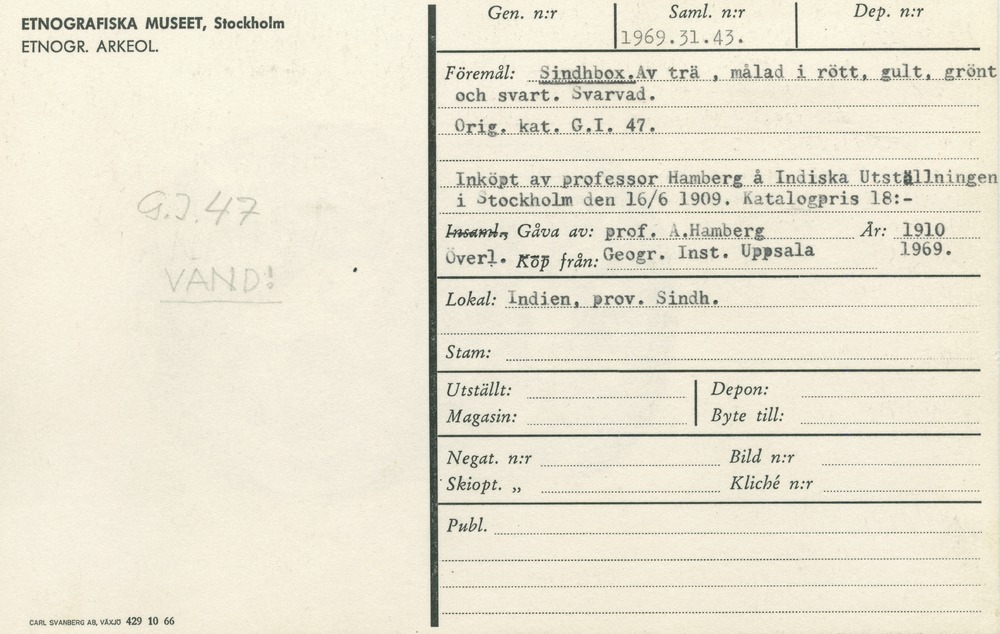 ETNOGRAFISKA MUSEET, Stockholm
ETNOGR. ARKEOL.
G.I.47
VÄND!
CARL SVANBERG AB, VÄXJÖ 429 10 66
Gen. n:r Saml. n:r Dep. n:r
1969.31.43.
Föremål: Sindhbox.Av trä , målad i rött, gult, grönt
och svart. Svarvad.
Orig. kat. G.I. 47.
Inköpt av professor Hamberg å Indiska Utställningen
i Stockholm den 16/6 1909. Katalogpris 18:-
Insaml., Gåva av: prof. A.Hamberg År: 1910
Överl. Köp från: Geogr. Inst. Uppsala 1969.
Lokal: Indien, prov. Sindh.
Stam:
Utställt: Depon:
Magasin: Byte till:
Negat. n:r Bild n:r
Skiopt. „ Kliché n:r
Publ.